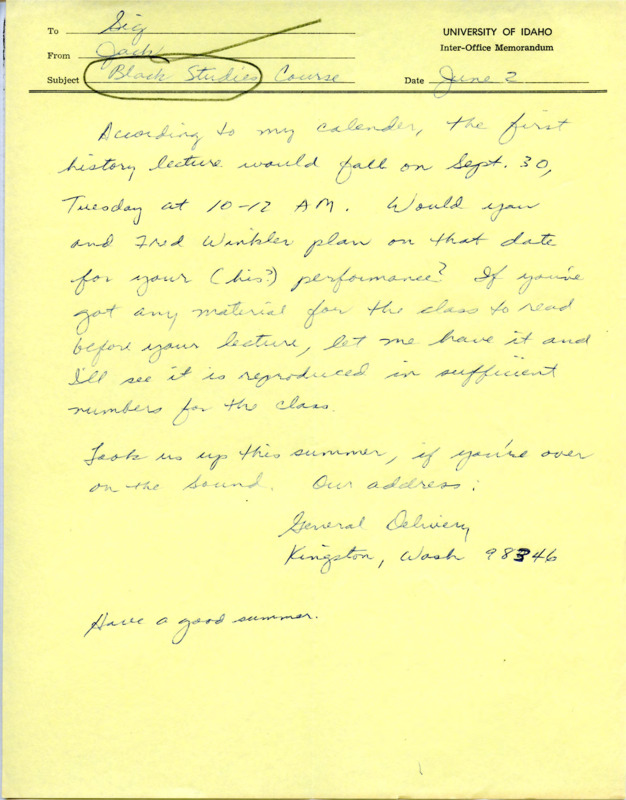 To Sig
UNIVERSITY OF IDAHO
Inter-Office Memorandum
From Jack
Subject Black Studies Course
Date June 2
According to my calender, the first
history lecture would fall on Sept. 30,
Tuesday at 10-12 AM. Would you
and Fred Winkler plan on that date
for your (his?) performance? If you've
got any material for the class to read
before your lecture, let me have it and
I'll see it is reproduced in sufficient
numbers for the class.
Look us up this summer, if you're over
on the Sound. Our address:
General Delivery
Kingston, Wash 98346
Have a good summer.